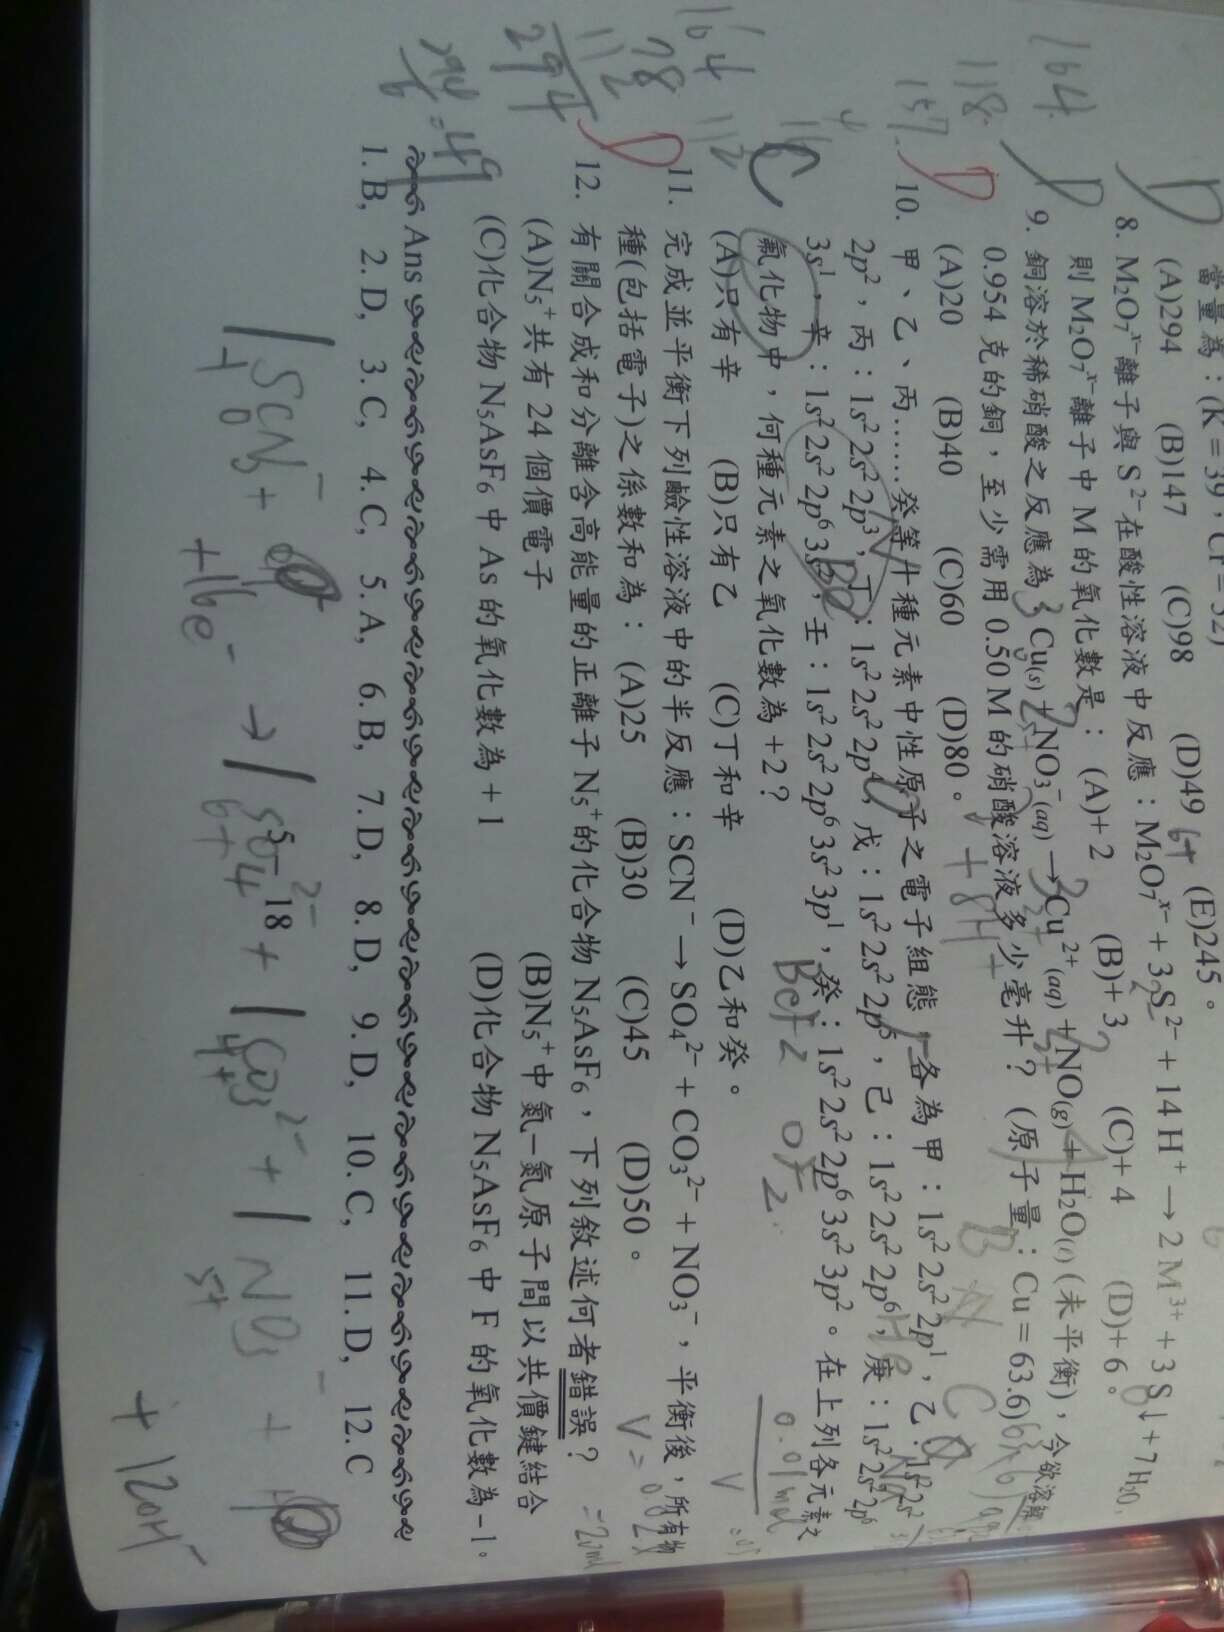 當量為：(K＝39，Cr＝52)
(A)294 (B)147 (C)98 (D)49 (E)245。
8. M₂O₇ˣ⁻離子與S²⁻在酸性溶液中反應：M₂O₇ˣ⁻＋3S²⁻＋14H⁺→2M³⁺＋3S↓＋7H₂O，
則M₂O₇ˣ⁻離子中M的氧化數是：(A)+2 (B)+3 (C)+4 (D)+6。
9. 銅溶於稀硝酸之反應為 Cu(s)＋NO₃⁻(aq)→Cu²⁺(aq)＋NO(g)＋H₂O(l)(未平衡)，今欲溶解
0.954克的銅，至少需用0.50 M的硝酸溶液多少毫升？(原子量：Cu＝63.6)
(A)20 (B)40 (C)60 (D)80。
10. 甲、乙、丙……癸等十種元素中性原子之電子組態，各為甲：1s²2s²2p¹，乙：1s²2s²
2p²，丙：1s²2s²2p³，丁：1s²2s²2p⁴，戊：1s²2s²2p⁵，己：1s²2s²2p⁶，庚：1s²2s²2p⁶
3s¹，辛：1s²2s²2p⁶3s²，壬：1s²2s²2p⁶3s²3p¹，癸：1s²2s²2p⁶3s²3p²。在上列各元素之
氟化物中，何種元素之氧化數為+2？
(A)只有辛 (B)只有乙 (C)丁和辛 (D)乙和癸。
11. 完成並平衡下列鹼性溶液中的半反應：SCN⁻→SO₄²⁻＋CO₃²⁻＋NO₃⁻，平衡後，所有物
種(包括電子)之係數和為：(A)25 (B)30 (C)45 (D)50。
12. 有關合成和分離含高能量的正離子N₅⁺的化合物N₅AsF₆，下列敘述何者錯誤？
(A)N₅⁺共有24個價電子 (B)N₅⁺中氮–氮原子間以共價鍵結合
(C)化合物N₅AsF₆中As的氧化數為+1 (D)化合物N₅AsF₆中F的氧化數為–1。
Ans
1. B, 2. D, 3. C, 4. C, 5. A, 6. B, 7. D, 8. D, 9. D, 10. C, 11. D, 12. C
18
164
118
157
164
78
112
294
D
D
D
C
D
+8H⁺
BeF2
OF2
0.01mol
V
+16e⁻
+12OH⁻